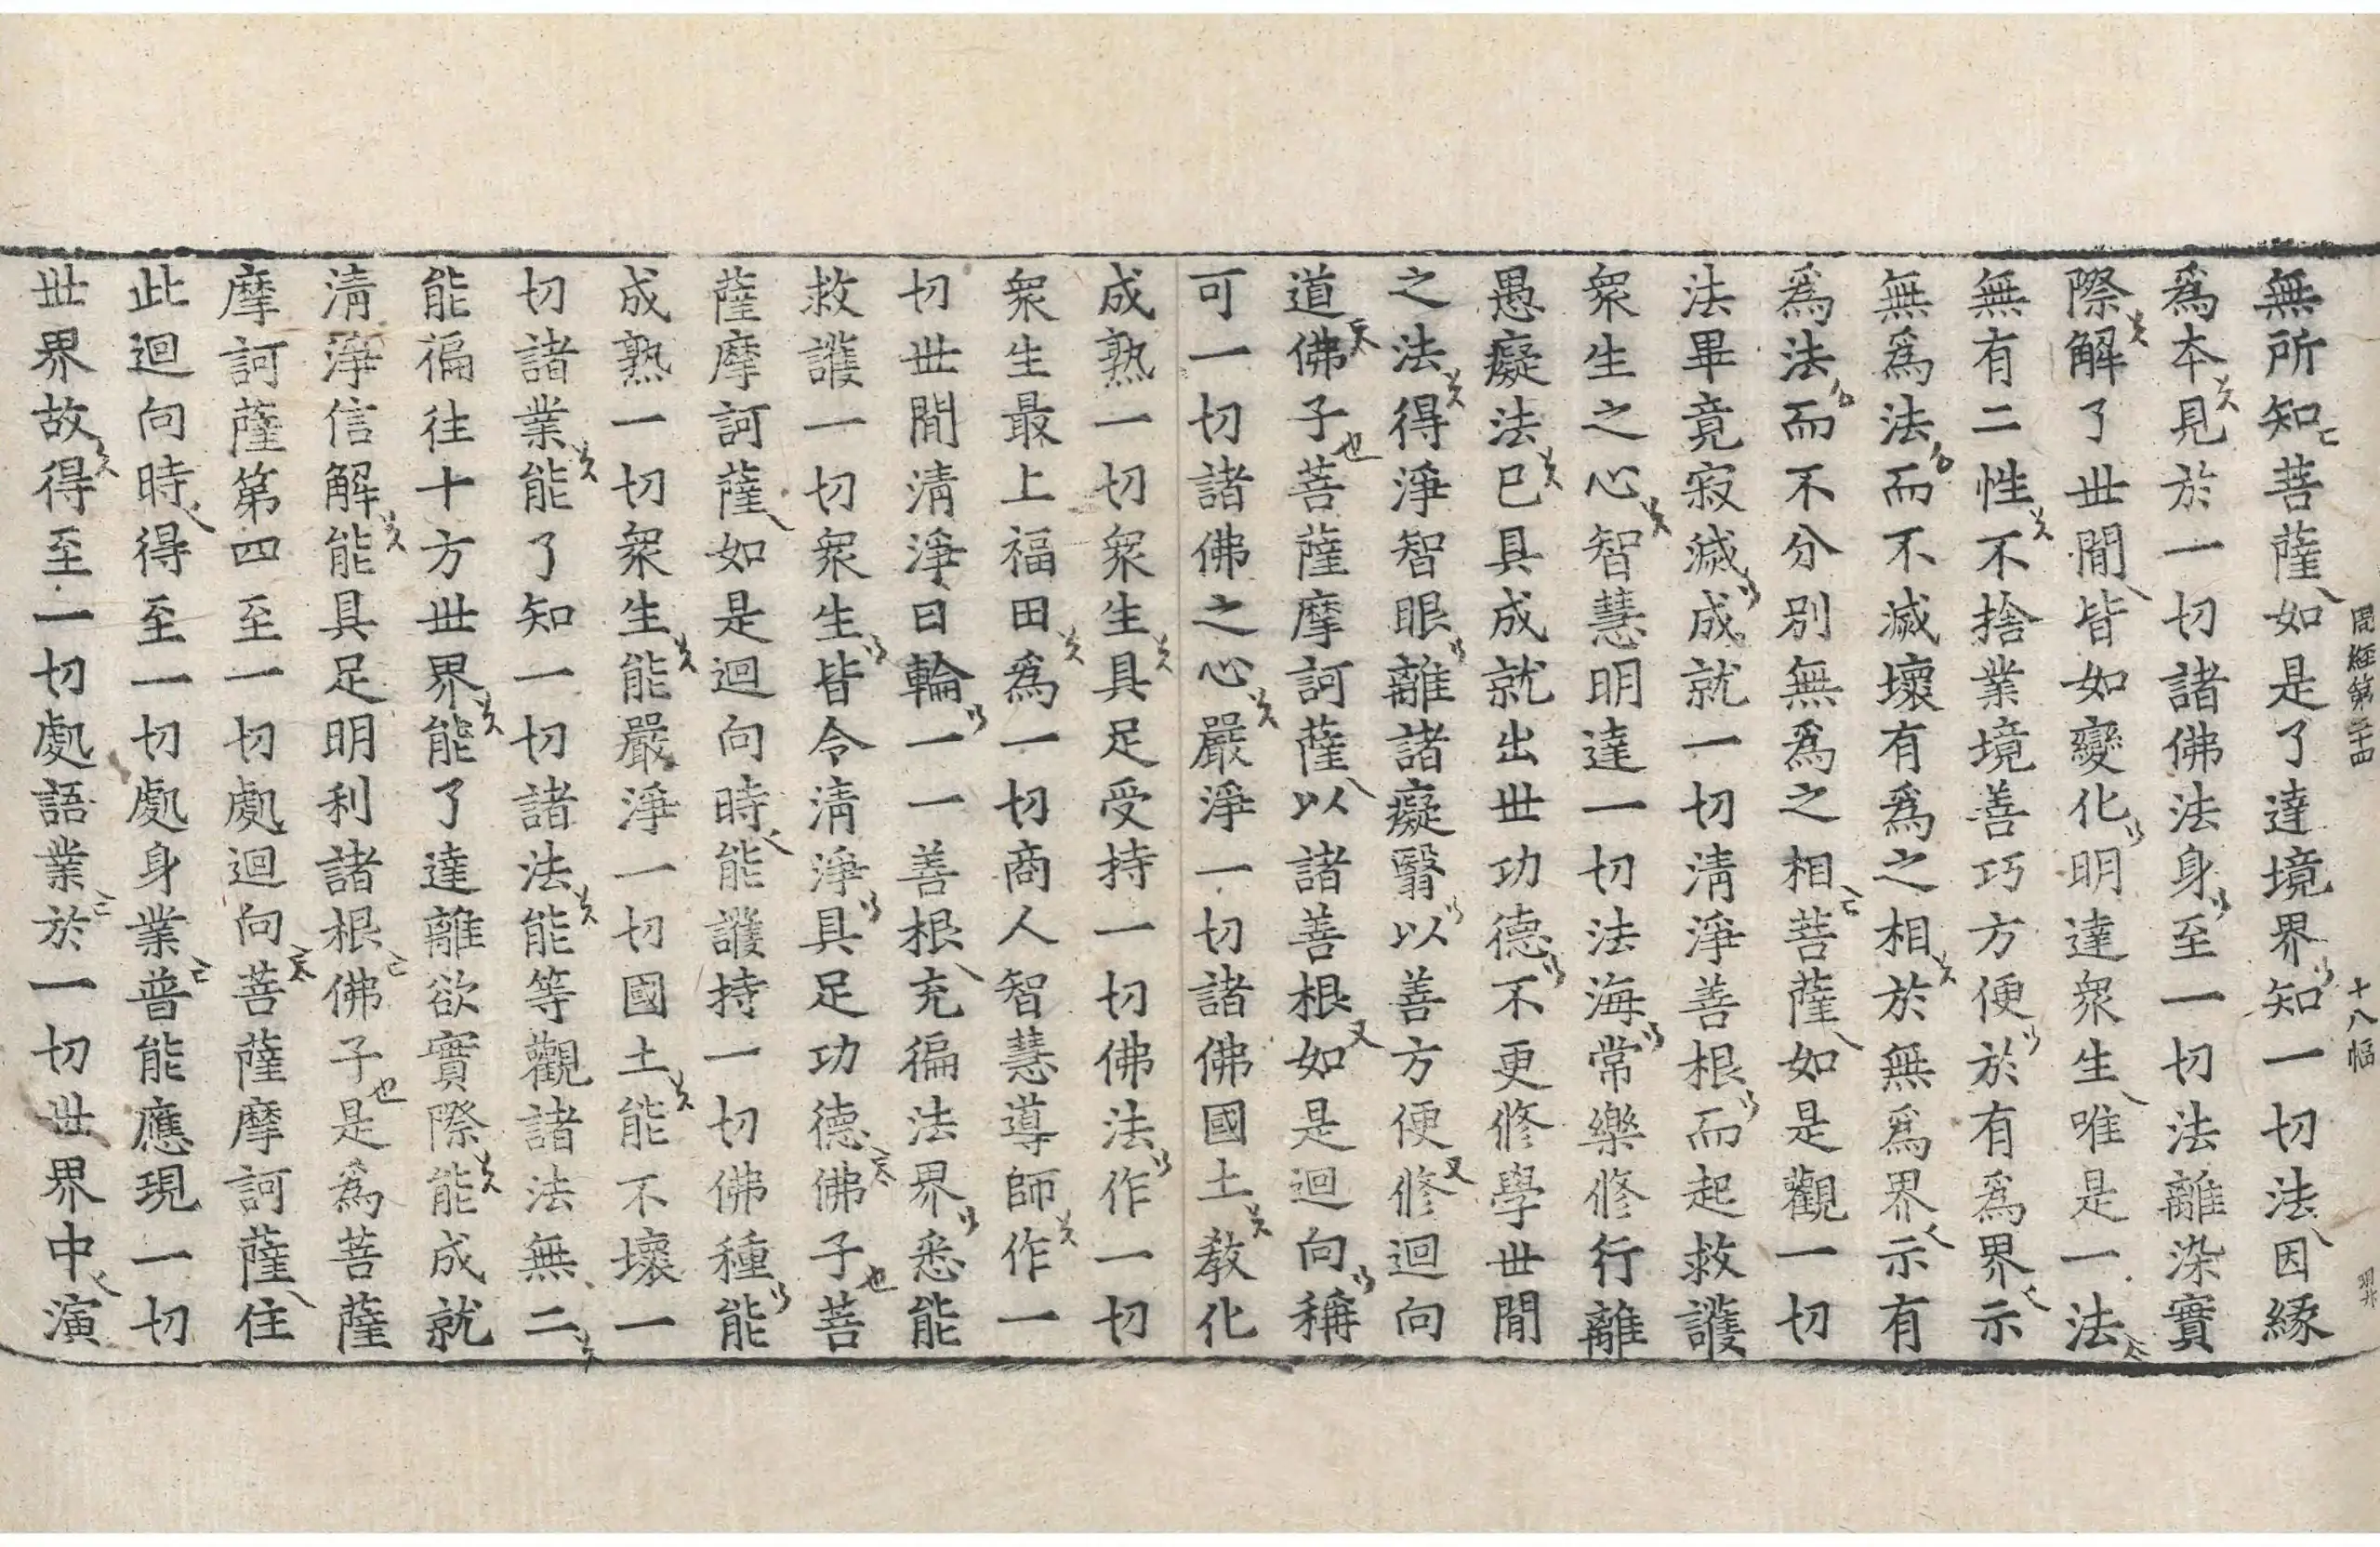 周經第二十四 十八幅
無所知菩薩如是了達境界知一切法因緣
爲本見於一切諸佛法身至一切法離染實
際解了世間皆如變化明達衆生唯是一法
無有二性不捨業境善巧方便於有爲界示
無爲法而不滅壞有爲之相於無爲界示有
爲法而不分別無爲之相菩薩如是觀一切
法畢竟寂滅成就一切清淨善根而起救護
衆生之心智慧明達一切法海常樂修行離
愚癡法已具成就出世功德不更修學世間
之法得淨智眼離諸癡翳以善方便修迴向
道佛子菩薩摩訶薩以諸善根如是迴向稱
可一切諸佛之心嚴淨一切諸佛國土教化
成熟一切衆生具足受持一切佛法作一切
衆生最上福田爲一切商人智慧導師作一
切世間清淨日輪一一善根充徧法界悉能
救護一切衆生皆令清淨具足功德佛子菩
薩摩訶薩如是迴向時能護持一切佛種能
成熟一切衆生能嚴淨一切國土能不壞一
切諸業能了知一切諸法能等觀諸法無二
能徧往十方世界能了達離欲實際能成就
清淨信解能具足明利諸根佛子是爲菩薩
摩訶薩第四至一切處迴向菩薩摩訶薩住
此迴向時得至一切處身業普能應現一切
世界故得至一切處語業於一切世界中演